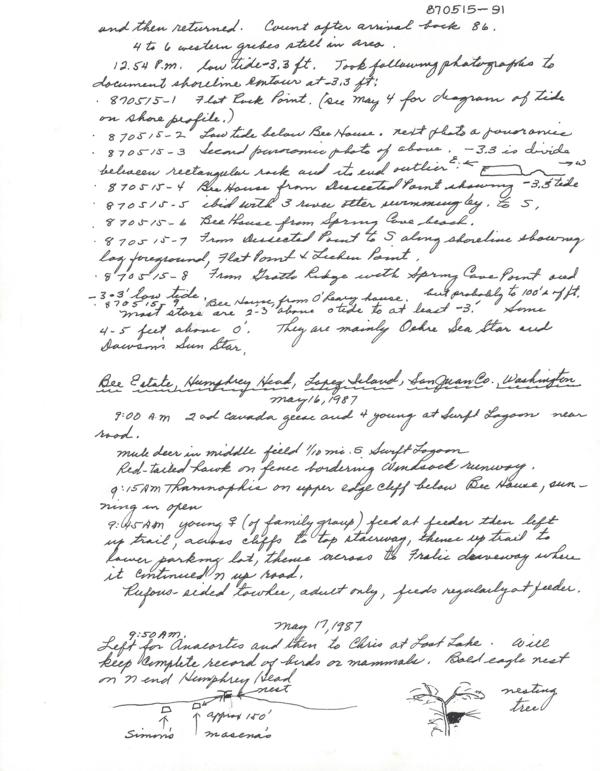 870515-91
and then returned. Count after arrival back 86.
4 to 6 western grebes still in area.
12:54 P.M. low tide -3.3 ft. Took following photographs to
document shoreline contour at -3.3 ft:
· 870515-1 Flat Rock Point. (see May 4 for diagram of tide
on shore profile.)
· 870515-2 Low tide below Bee House. next photo a panoramic
· 870515-3 Second panoramic photo of above. -3.3 is divide
between rectangular rock and its end outlier E: ← → W
· 870515-4 Bee House from Dissected Point showing -3.3 tide
· 870515-5 ibid with 3 river otter swimming by. to S,
· 870515-6 Bee House from Spring Cove beach.
· 870515-7 From Dissected Point to S along shoreline showing
log foreground, Flat Point & Lichen Point.
· 870515-8 From Grotto Ridge with Spring Cove Point and
-3.3' low tide
· 870515-9. Bee House, from O'Leary house. but probably to 100's of ft.
most stars are 2-3' above 0 tide to at least -3.' Some
4-5 feet above 0'. They are mainly Ochre Sea Star and
Dawson's Sun Star.
Bee Estate, Humphrey Head, Lopez Island, San Juan Co., Washington
May 16, 1987
9:00 AM 2 ad Canada geese and 4 young at Surft Lagoon near
road.
mule deer in middle field 1/10 mi. S Surft Lagoon
Red-tailed hawk on fence bordering Windsock runway.
9:15 AM Thamnophis on upper edge cliff below Bee House, sun-
ning in open
9:45 AM young ♀ (of family group) feed at feeder then left
up trail, across cliffs to top stairway, thence up trail to
lower parking lot, thence across to driveway where
it continued N up road.
Rufous-sided towhee, adult only, feeds regularly at feeder.
May 17, 1987
9:50 AM.
Left for Anacortes and then to Chris at Lost Lake. Will
keep complete record of birds or mammals. Bald eagle nest
on N end Humphrey Head
nest
approx 150'
Simon's
Masena's
nesting
tree